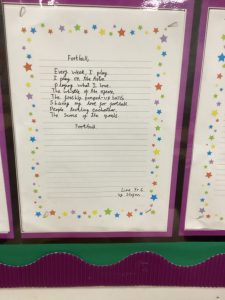 Football
Every week, I play.
I play on the Astro
Playing what I love.
The whistle of the
The freshly pumped-up balls
Sharing my love for football.
People tackling eachother.
The score of the goals
Football